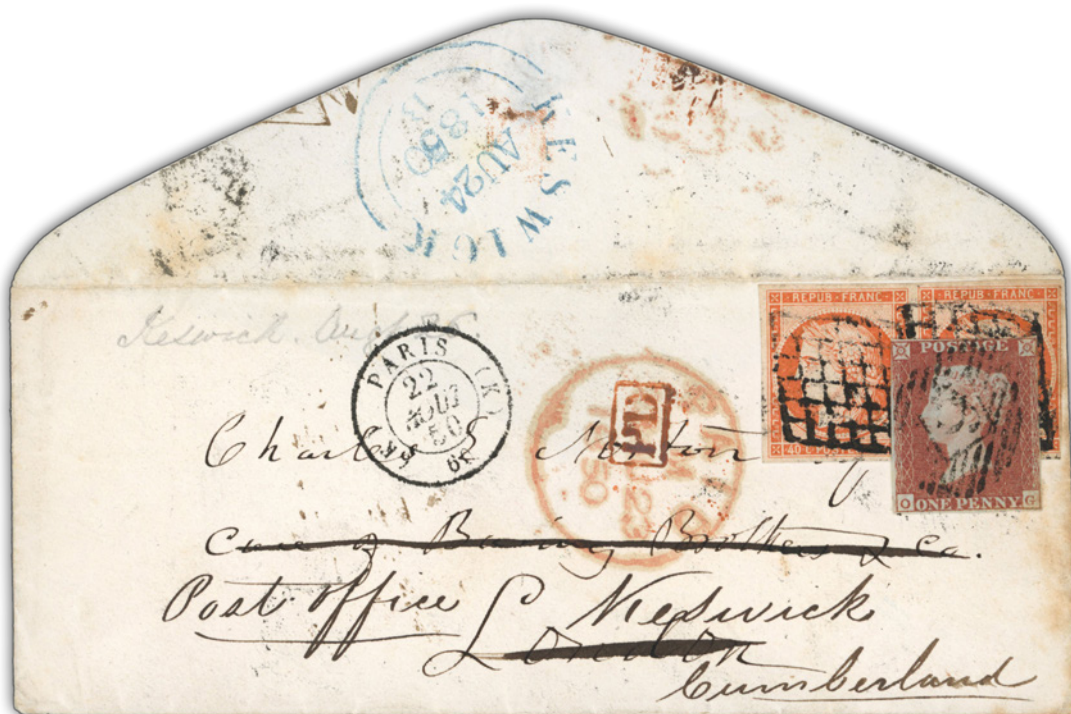 KESWICK
AU 24
1850
B
Keswick. Aug
PARIS (K)
22
AOUT
50
60
REPUB·FRANC
REPUB·FRANC
40 C POSTES
POSTAGE
O ONE PENNY. G
PD
PAID
23
1850
Charles Norton
care of Baring Brothers & Co.
Post Office Keswick
London
Cumberland